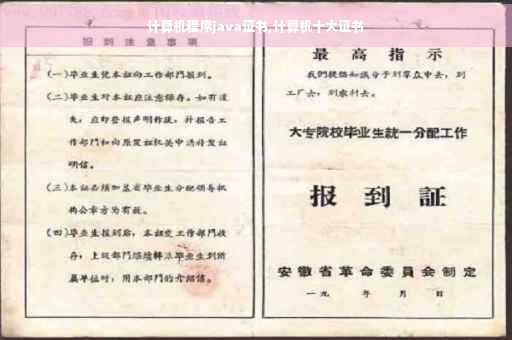 计算机程序java证书,计算机十大证书
报到注意事项
(一)毕业生凭本证向工作部门报到。
(二)毕业生对本证应注意保存。如有遗
失,应即登报声明作废,并报告工
作部门和向原发证机关申请补发证
明信。
(三)本证必须加盖省毕业生分配领导机
构公章方为有效。
(四)毕业生报到后,本证交工作部门收
存;上级部门继续转派毕业生到所
属单位时,用本部门的介绍信。
最高指示
我们提倡知识分子到群众中去,到
工厂去,到农村去。
大专院校毕业生统一分配工作
报到証
安徽省革命委員会制定
一九 年 月 日